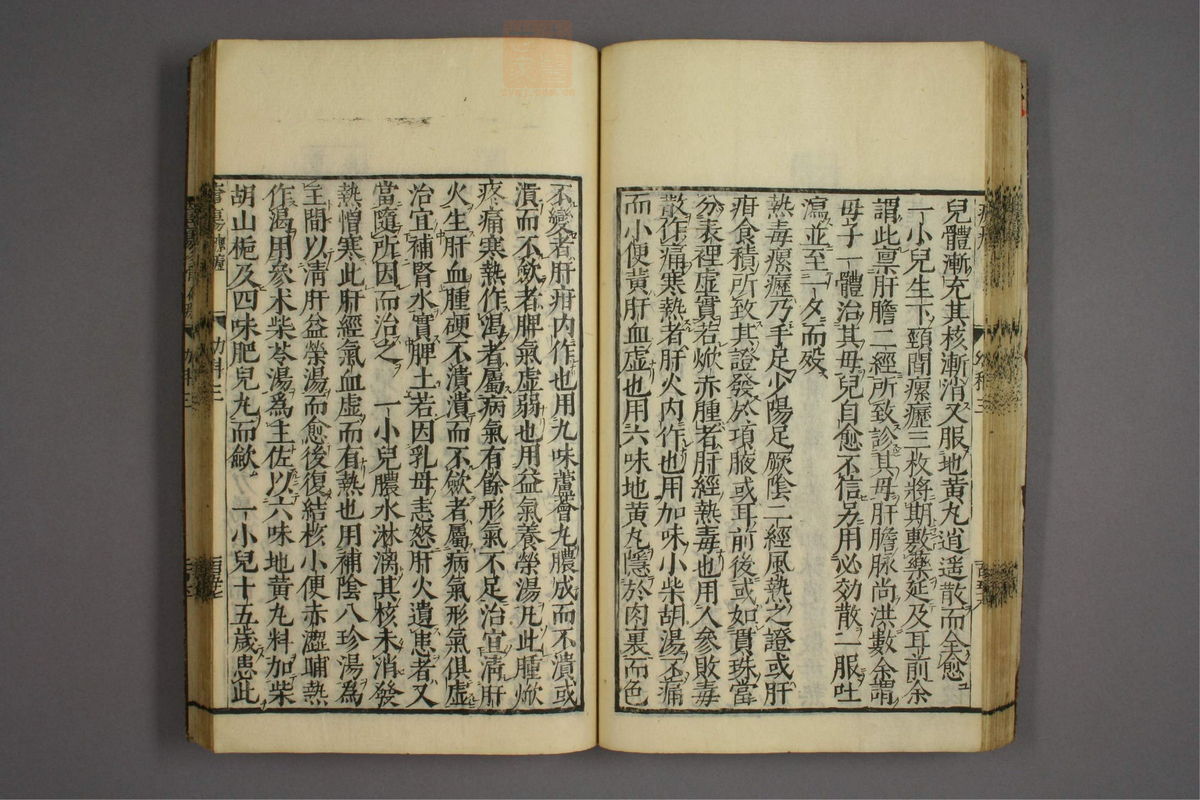 兒體漸充其核漸消又服地黄丸逍遥散而全愈
一小兒生下頸間瘰癧三枚將期敷藥延及耳前余
謂此禀肝膽二經所致診其母肝膽脉尚洪數余謂
母子一體治其母兒自愈不信另用必効散二服吐
瀉並至一夕而殁
熱毒瘰癧乃手足少陽足厥陰二經風熱之證或肝
疳食積所致其證發於項腋或耳前後或如貫珠當
分表裡虚實若焮赤腫者肝經熱毒也用人參敗毒
散作痛寒熱者肝火内作也用加味小柴胡湯不痛
而小便黄肝血虚也用六味地黄丸隱於肉裏而色
不變者肝疳内作也用九味蘆薈丸膿成而不潰或
潰而不歛者脾氣虚弱也用益氣養榮湯凡此腫焮
疼痛寒熱作渴者屬病氣有餘形氣不足治宜清肝
火生肝血腫硬不潰潰而不歛者屬病氣形氣俱虚
治宜補腎水實脾土若因乳母恚怒肝火遺患者又
當隨所因而治之 一小兒膿水淋漓其核未消發
熱憎寒此肝經氣血虚而有熱也用補陰八珍湯為
主間以清肝益榮湯而愈後復結核小便赤澀晡熱
作渴用參术柴苓湯為主佐以六味地黄丸料加柴
胡山梔及四味肥兒丸而歛 一小兒十五歲患此